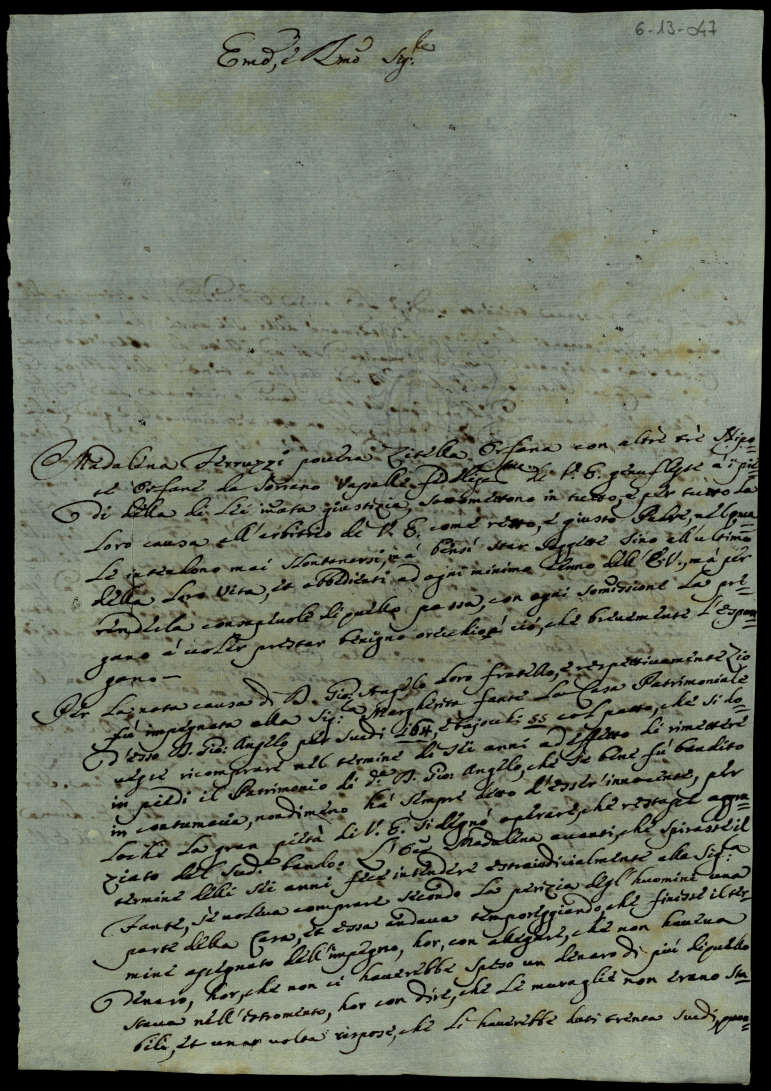 6-13-047
Emo, e Rmo Sig.re
Madalena Ferruzzi povera Zitella Orfana con altre trè Nipo=
te Orfane da Soriano Vassalle fedeliss.me di V. E. genuflesse a i pie=
di della di Lei innata giustizia, sottomettono in tutto, e per tutto la
Loro causa all'arbitrio di V. E. come retto, e giusto Padre, nè
Le intendono mai slontanarsi, mà bensì star soggette sino all'ultimo
della Loro Vita, et obbedienti ad ogni minimo cenno dell'E.V., mà per
renderla consapevole di quello passa, con ogni somissione La pre=
gano à voler prestar benigno orecchio à ciò, che brevemente L'espon=
gano—
Per La nota causa di D. Gio. Angelo Loro fratello, e respettivamente Zio
fù impegnata alla Sig.ra Margherita Fante La Casa Patrimoniale
d'esso D. Gio. Angelo per scudi 164, e bajocchi 55 col patto, che si do=
vesse ricomprare nel termine di sei anni ad effetto di rimettere
in piedi il Patrimonio di d.o D. Gio. Angelo, che se bene fù bandito
in contumacia, nondimeno hà sempre detto d'esser innocente, per
Loche La gran pietà di V. E. si degnò operare, che restasse aggra=
ziato del sud.o bando. Madalena avanti, che spirasse il
termine delli sei anni fece intendere estraiudicialmente alla Sig.ra
Fante, se voleva comprare secondo La perizia degl'huomini una
parte della Casa, et essa andava temporeggiando, che finisse il ter=
mine assegnato dell'impegno, hor, con allegare, che non haveva
denaro, hor, che non ci haverebbe speso un denaro di più di quello
stava nell'istromento, hor con dire, che Le muraglie non erano sta=
bili, et una volta rispose, che Li haverebbe dati trenta scudi,